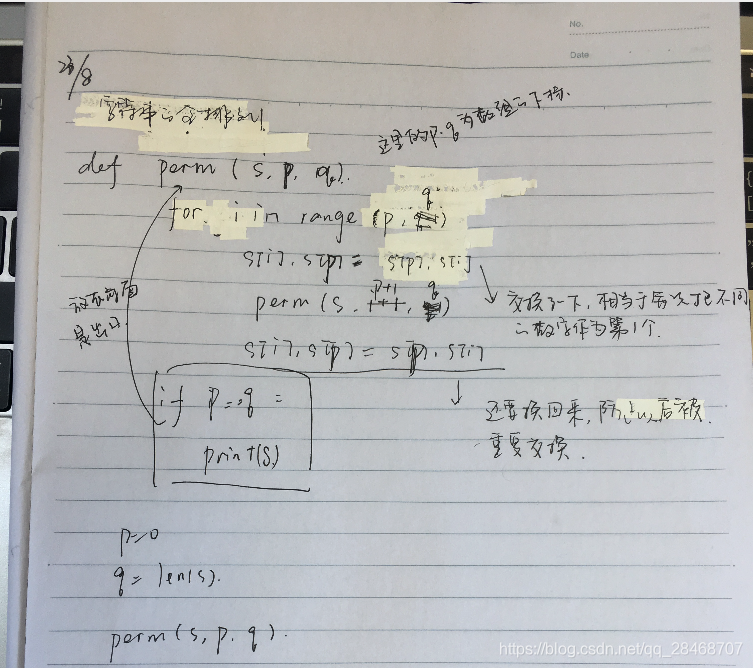 No.
Date
28/8
字符串的全排列
这里的p,q为数组的下标.
def perm (s, p, q).
for i in range (p, q)
s[i], s[p] = s[p], s[i]
perm (s, p+1, q)
交换了一下, 相当于每次把不同
的数字作为第1个.
s[i], s[p] = s[p], s[i]
放在前面
是出口.
if p == q =
print(s)
还要换回来, 防止以后被
重复交换.
p=0
q = len(s).
perm(s, p, q).
https://blog.csdn.net/qq_28468707